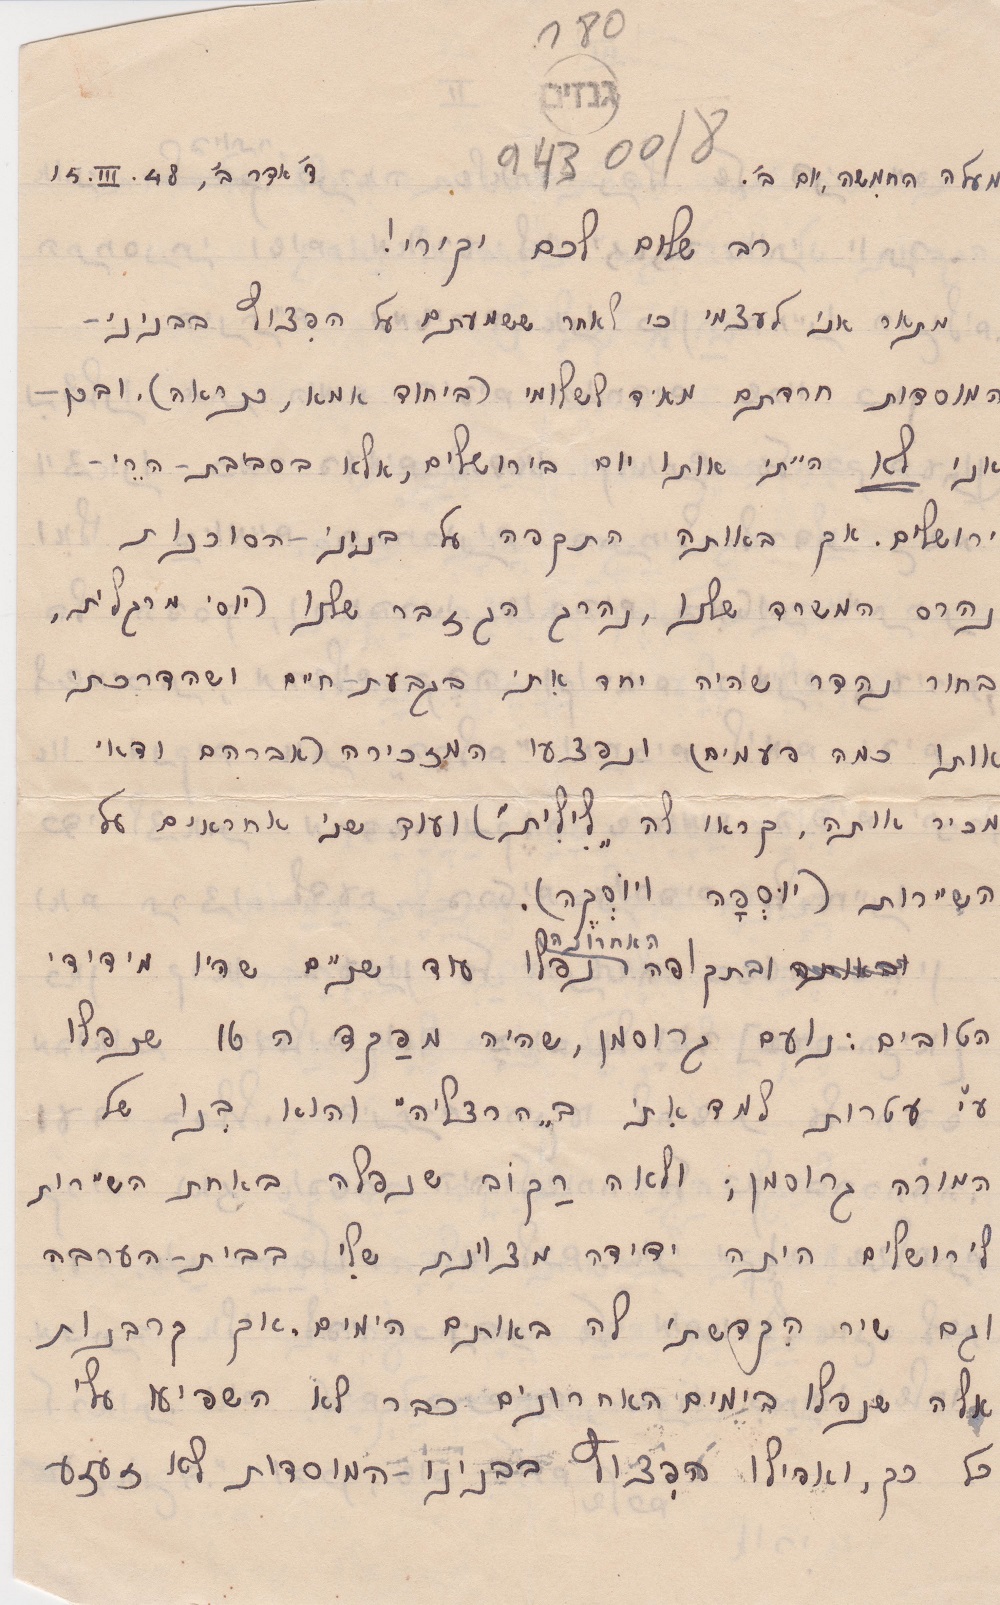 180
גנזים
943 00/8
מעלה החמשה, יום ב'. ד' אדר ב', 15.III.48
רב שלום לכם יקירי!
מתאר אני לעצמי כי לאחר ששמעתם על הפִצוץ בבניני-
המוסדות חרדתם מאד לשלומי (ביחוד אמא, כנראה). ובכן -
אני לא הייתי אותו יום בירושלים, אלא בסביבת-הרֵי-
ירושלים. אך באותה התקפה על בניני-הסוכנות
נהרס המשרד שלנו, נהרג הגזבר שלנו (יוסי מרגלית,
בחור נהדר שהיה יחד אִתי בגבעת-חיים ושהדרכתי
אותו כמה פעמים) ונפצעו המזכירה (אברהם ודאי
מכיר אותה, קראו לה "לִילִית") ועוד שני אחראים על
השיירות (יוּסְפָה ויוֹסְקֶה).
האחרונה
ובתקופה נפלו עוד שניים שהיו מידידי
הטובים: נועם גרוסמן, שהיה מפַקד ה 16 שנפלו
ע"י עטרות למד אִתי ב"הרצליה" והוא בְנו של
המורה גרוסמן; ולאה רַקוֹב שנפלה באחת השיירות
לירושלים היתה ידידה מצוינת שלִי בבית-הערבה
וגם שיר הִקדשתי לה באותם הימים. אך קרבנות
אלה שנפלו בימים האחרונים כבר לא השפיעו עלי
כל כך, ואפילו הפִצוץ בבנינו-המוסדות לא זעזע